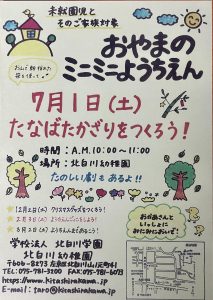 未就園児と
そのご家族対象
おやまの
ミニミニようちえん
7月1日(土)
たなばたかざりをつくろう!
時間:A.M.10:00~11:00
場所:北白川幼稚園
たのしい劇もあるよ!!
☆12月2日(土) クリスマスグッズをつくろう!
☆2月3日(土)
☆3月2日(土)
おかあさんと
いっしょに
みにみにおいで!
学校法人 北白川学園
北白川幼稚園
〒606-8273 左京区北白川山田町41
TEL: 075-781-3200 FAX: 075-781-6073
https://www.kitashirakawa.jp
E-mail: taro@kitashirakawa.jp